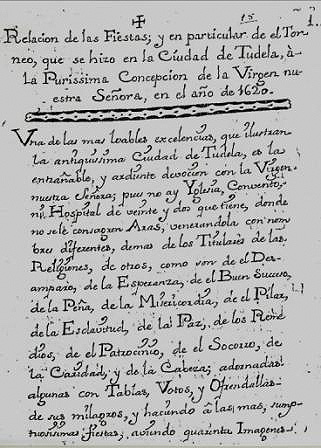 15
1.
Relacion de las Fiestas; y en particular de el Tor-
neo, que se hizo en la Ciudad de Tudela, à
la Purissima Concepcion de la Virgen nu-
estra Señora, en el año de 1620.
Una de las mas loables excelencias, que ilustran
la antiquissima Ciudad de Tudela, es la
entrañable, y ardiente devocion con la Virgen
nuestra Señora; pues no ay Yglesia, Convento,
ni Hospital de veinte y dos que tiene, donde
no se le consagren Aras, venerandola con nom-
bres diferentes, demas de los Titulares de las
Religiones, de otros, como son de el Des-
amparo, de la Esperanza, de el Buen Suceso,
de la Peña, de la Misericordia, de el Pilar,
de la Esclavitud, de la Paz, de los Reme
dios, de el Patrocinio, de el Socorro, de
la Caridad, y de la Cabeza; adornadas
algunas con Tablas, Votos, y Ofrendallas
de sus milagros, y haciendo à las mas, sump-
tuosissimas fiestas; aviendo quarenta Imagenes